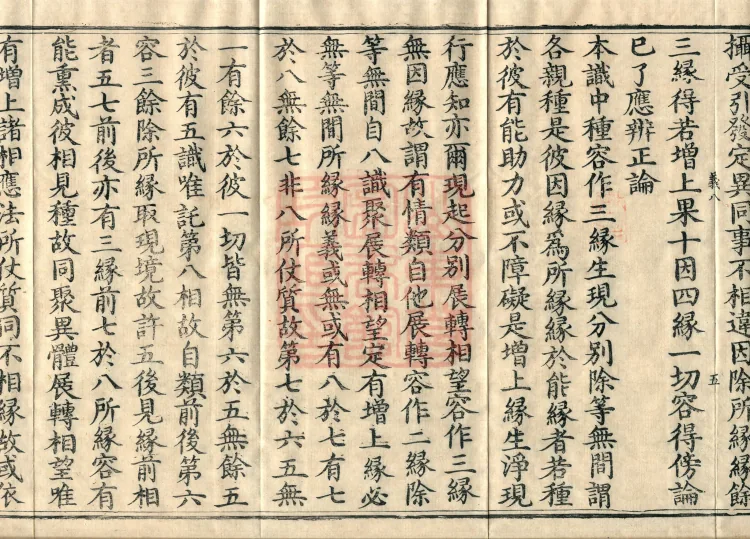 攝受引發定異同事不相違因除所緣緣餘
義八
五
三緣得若增上果十因四緣一切容得傍論
已了應辨正論
本識中種容作三緣生現分別除等無間謂
各親種是彼因緣為所緣緣於能緣者若種
於彼有能助力或不障礙是增上緣生淨現
行應知亦爾現起分別展轉相望容作三緣
無因緣故謂有情類自他展轉容作二緣除
等無間自八識聚展轉相望定有增上緣必
無等無間所緣緣義或無或有八於七有七
於八無餘七非八所仗質故第七於六五無
一有餘六於彼一切皆無第六於五無餘五
於彼有五識唯託第八相故自類前後第六
容三餘除所緣取現境故許五後見緣前相
者五七前後亦有三緣前七於八所緣容有
能熏成彼相見種故同聚異體展轉相望唯
有增上諸相應法所仗質同不相緣故或依